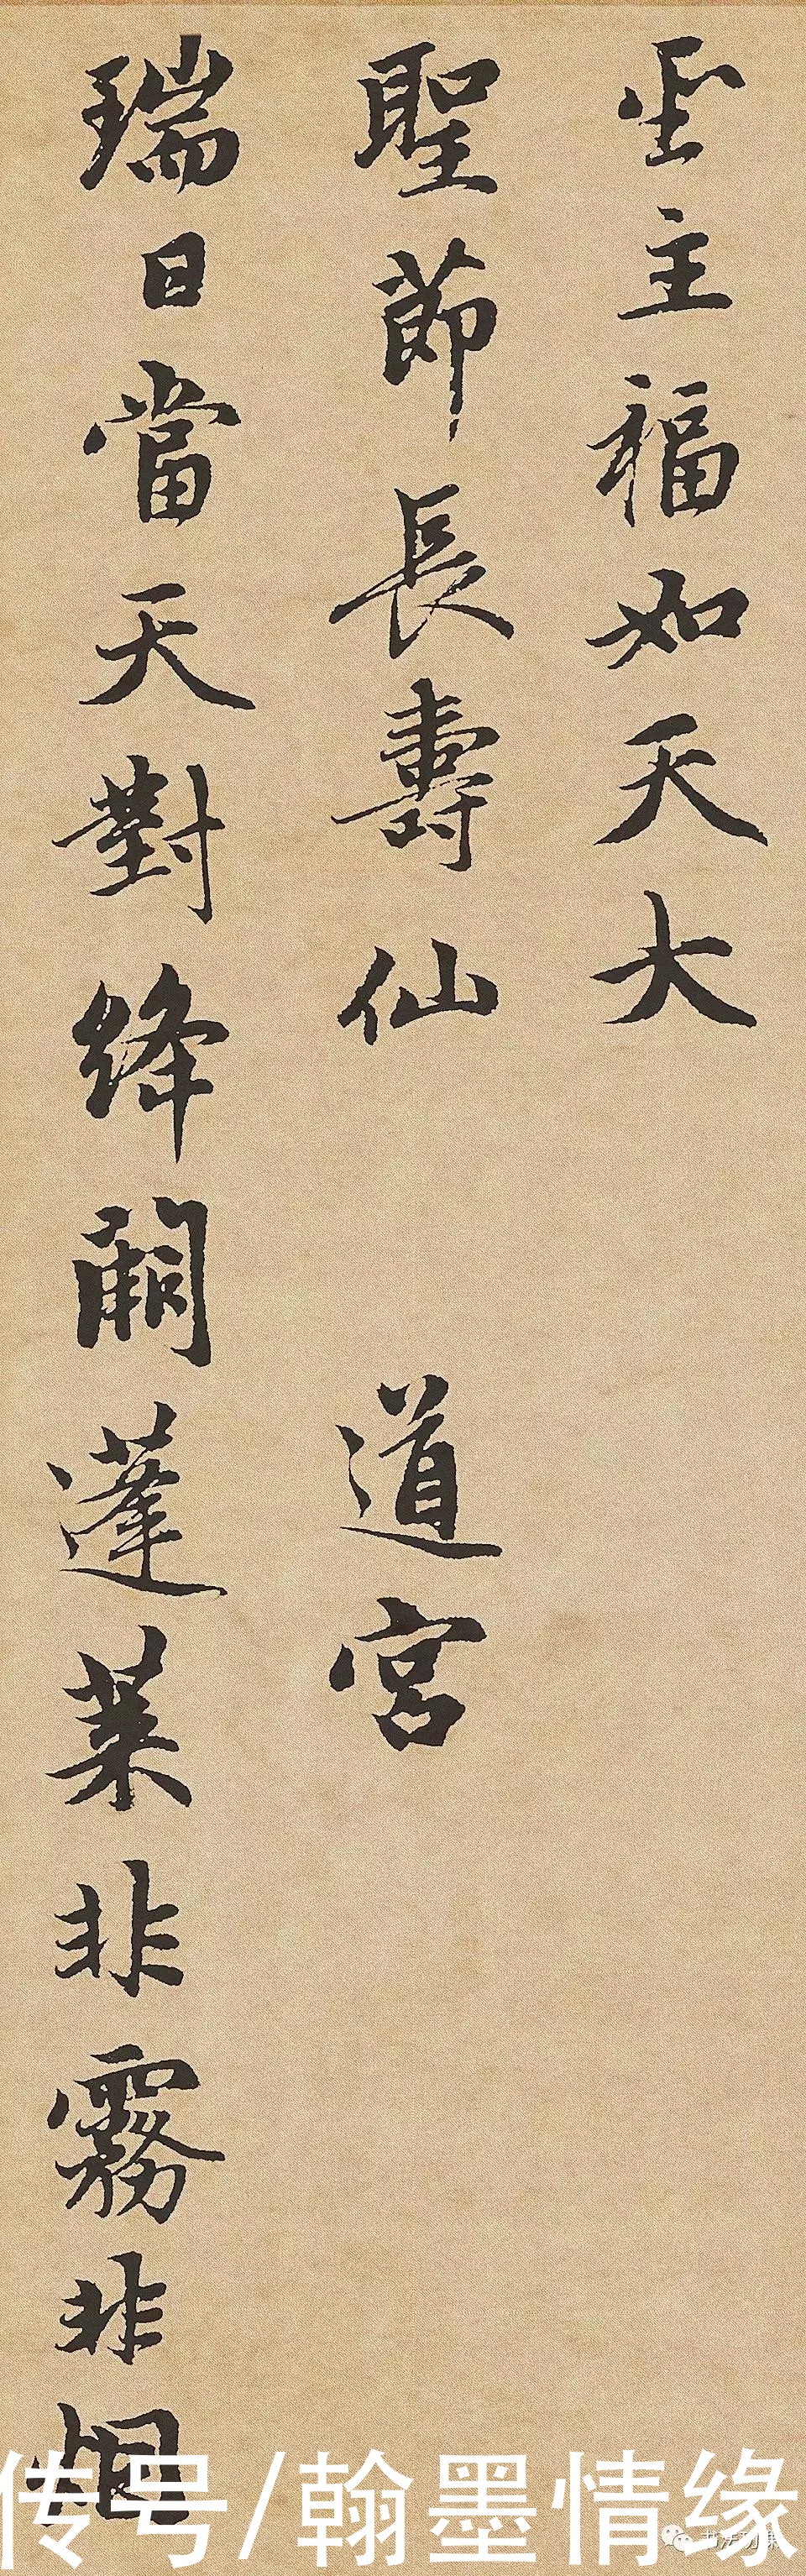 聖主福如天大
聖節長壽仙
道宮
瑞日當天對絳闕蓬萊非霧非烟
传号/翰墨情缘